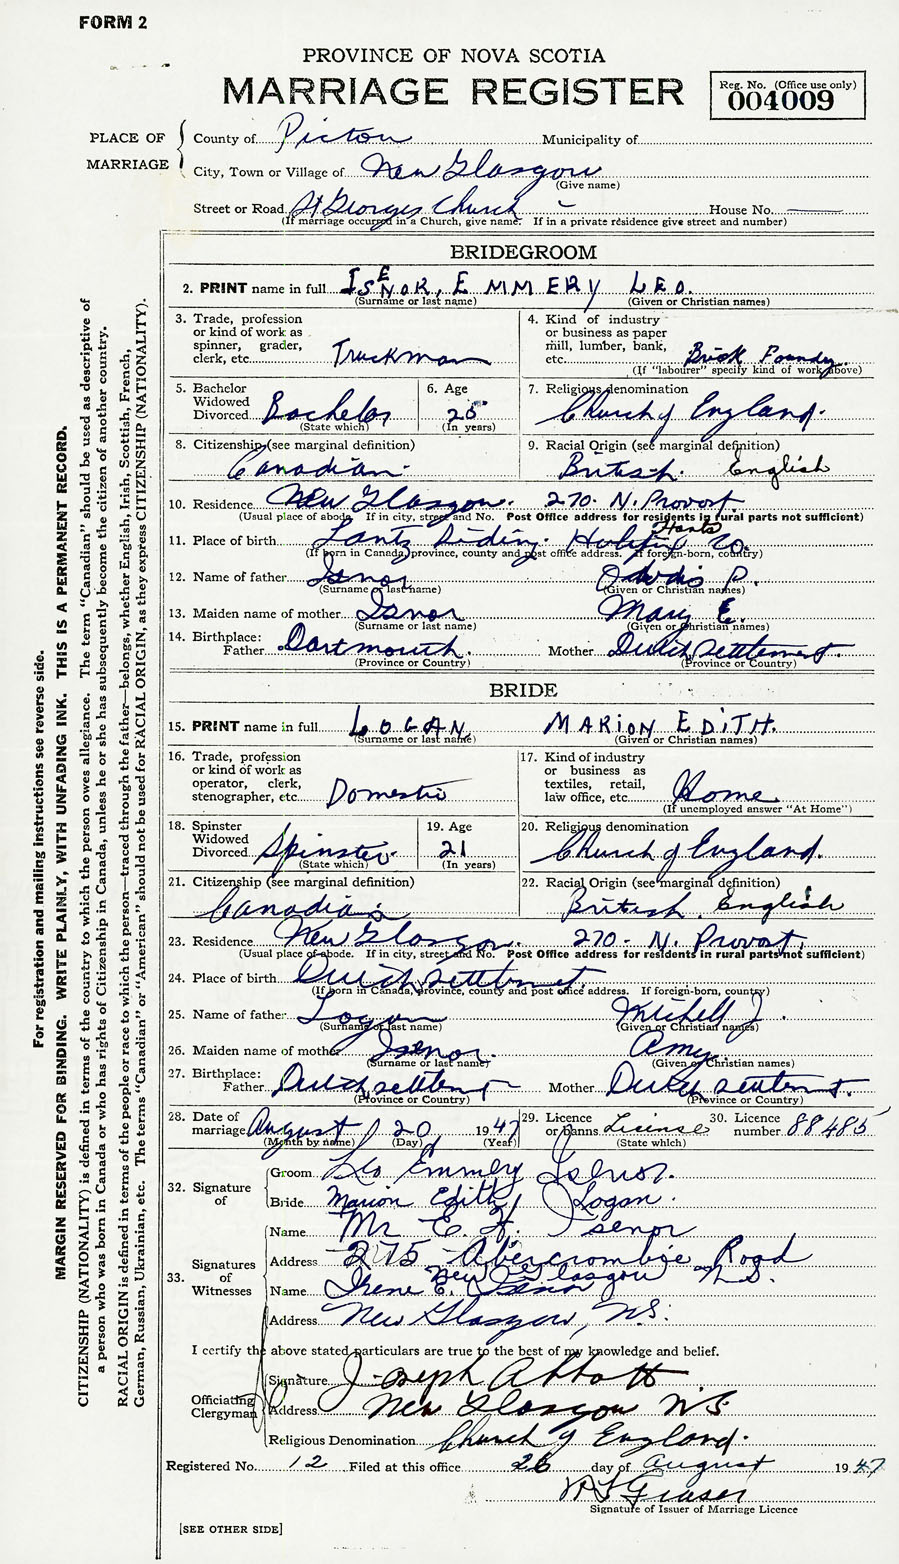 FORM 2
PROVINCE OF NOVA SCOTIA
MARRIAGE REGISTER
Reg. No. (Office use only)
004009
PLACE OF MARRIAGE
County of Pictou Municipality of
City, Town or Village of New Glasgow
(Give name)
Street or Road St Georges Church - House No.
(If marriage occurred in a Church, give name. If in a private residence give street and number)
BRIDEGROOM
2. PRINT name in full ISENOR, EMMERY LEO.
(Surname or last name) (Given or Christian names)
3. Trade, profession or kind of work as spinner, grader, clerk, etc. Truckman
4. Kind of industry or business as paper mill, lumber, bank, etc. Brick Foundy.
(If "labourer" specify kind of work above)
5. Bachelor Widowed Divorced Bachelor
(State which)
6. Age 25
(In years)
7. Religious denomination Church of England.
8. Citizenship (see marginal definition) Canadian.
9. Racial Origin (see marginal definition) British. English
10. Residence New Glasgow. 270. N. Provost.
(Usual place of abode. If in city, street and No. Post Office address for residents in rural parts not sufficient)
11. Place of birth Lantz Siding. Halifax Hants Co.
(If born in Canada, province, county and post office address. If foreign-born, country)
12. Name of father Isnor P.
(Surname or last name) (Given or Christian names)
13. Maiden name of mother Isnor Mary E.
(Surname or last name) (Given or Christian names)
14. Birthplace: Father Dartmouth. Mother Dutch settlement.
(Province or Country) (Province or Country)
BRIDE
15. PRINT name in full LOGAN, MARION EDITH.
(Surname or last name) (Given or Christian names)
16. Trade, profession or kind of work as operator, clerk, stenographer, etc. Domestic
17. Kind of industry or business as textiles, retail, law office, etc. Home
(If unemployed answer "At Home")
18. Spinster Widowed Divorced Spinster.
(State which)
19. Age 21
(In years)
20. Religious denomination Church of England.
21. Citizenship (see marginal definition) Canadian
22. Racial Origin (see marginal definition) British. English
23. Residence New Glasgow. 270- N. Provost.
(Usual place of abode. If in city, street and No. Post Office address for residents in rural parts not sufficient)
24. Place of birth Dutch settlement.
(If born in Canada, province, county and post office address. If foreign-born, country)
25. Name of father Logan Mitchell J.
(Surname or last name) (Given or Christian names)
26. Maiden name of mother Isenor. Amy.
(Surname or last name) (Given or Christian names)
27. Birthplace: Father Dutch settlemt Mother Dutch settlemt.
(Province or Country) (Province or Country)
28. Date of marriage August 20 1947
(Month by name) (Day) (Year)
29. Licence or banns License
(State which)
30. Licence number 88485
32. Signature of
Groom Leo Emmery Isenor.
Bride Marion Edith Logan.
33. Signatures of Witnesses
Name Mr. E. H. Isenor
Address 275 Abercrombie Road
New Glasgow N.S.
Name Irene E. Isenor
Address New Glasgow, N.S.
I certify the above stated particulars are true to the best of my knowledge and belief.
Officiating Clergyman
Signature Joseph Abbott
Address New Glasgow N.S.
Religious Denomination Church of England.
Registered No. 12 Filed at this office 26 day of August 1947
Fraser
Signature of Issuer of Marriage Licence
[SEE OTHER SIDE]
For registration and mailing instructions see reverse side.
MARGIN RESERVED FOR BINDING. WRITE PLAINLY, WITH UNFADING INK. THIS IS A PERMANENT RECORD.
CITIZENSHIP (NATIONALITY) is defined in terms of the country to which the person owes allegiance. The term "Canadian" should be used as descriptive of
a person who was born in Canada or who has rights of Citizenship in Canada, unless he or she has subsequently become the citizen of another country.
RACIAL ORIGIN is defined in terms of the people or race to which the person—traced through the father—belongs, whether English, Irish, Scottish, French,
German, Russian, Ukrainian, etc. The terms "Canadian" or "American" should not be used for RACIAL ORIGIN, as they express CITIZENSHIP (NATIONALITY).